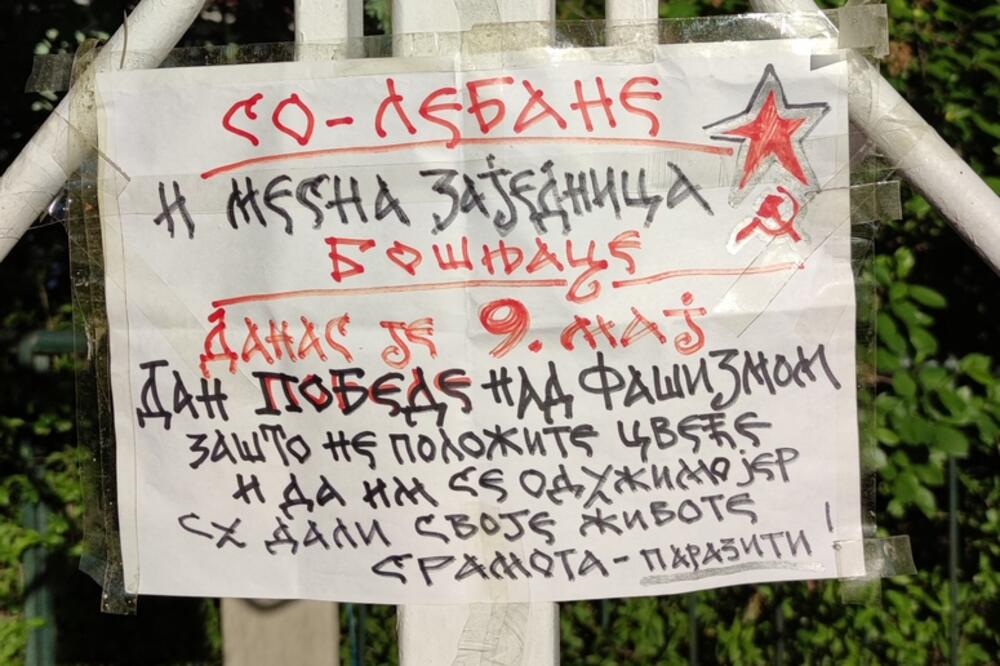 СО-ЛЕБАНЕ
И МЕСНА ЗАЈЕДНИЦА
БОШЊАЦЕ
ДАНАС ЈЕ 9. МАЈ
ДАН ПОБЕДЕ НАД ФАШИЗМОМ
ЗАШТО НЕ ПОЛОЖИТЕ ЦВЕЋЕ
И ДА ИМ СЕ ОДУЖИМО ЈЕР
СУ ДАЛИ СВОЈЕ ЖИВОТЕ
СРАМОТА - ПАРАЗИТИ !